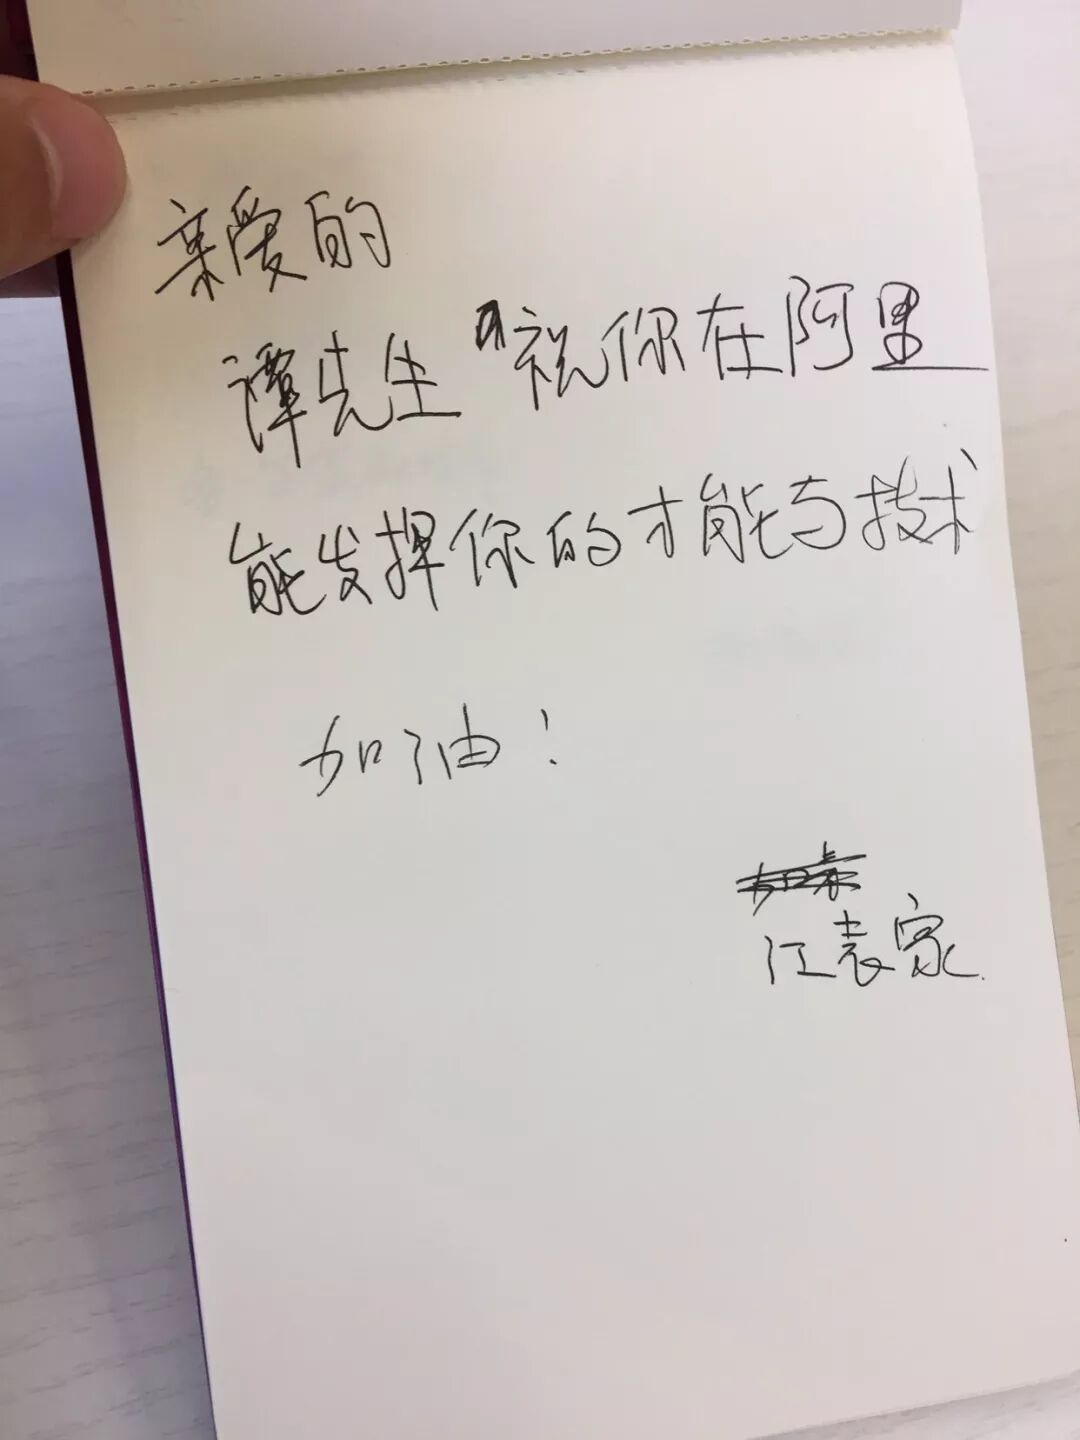 亲爱的
谭先生 祝你在阿里
能发挥你的才能与技术
加油!
江袁家